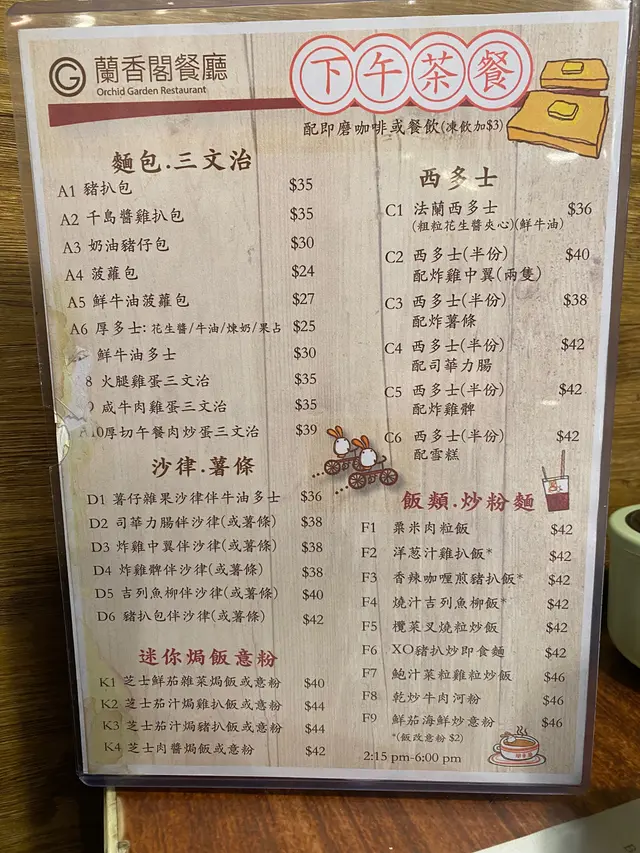 蘭香閣餐廳
Orchid Garden Restaurant
下午茶餐
配即磨咖啡或餐飲(凍飲加$3)
麵包.三文治
A1 豬扒包 $35
A2 千島醬雞扒包 $35
A3 奶油豬仔包 $30
A4 菠蘿包 $24
A5 鮮牛油菠蘿包 $27
A6 厚多士: 花生醬/牛油/煉奶/果占 $25
鮮牛油多士 $30
8 火腿雞蛋三文治 $35
9 咸牛肉雞蛋三文治 $35
A10 厚切午餐肉炒蛋三文治 $39
沙律.薯條
D1 薯仔雜果沙律伴牛油多士 $36
D2 司華力腸伴沙律(或薯條) $38
D3 炸雞中翼伴沙律(或薯條) $38
D4 炸雞髀伴沙律(或薯條) $38
D5 吉列魚柳伴沙律(或薯條) $40
D6 豬扒包伴沙律(或薯條) $42
迷你焗飯意粉
K1 芝士鮮茄雜菜焗飯或意粉 $40
K2 芝士茄汁焗雞扒飯或意粉 $44
K3 芝士茄汁焗豬扒飯或意粉 $44
K4 芝士肉醬焗飯或意粉 $42
西多士
C1 法蘭西多士 $36
(粗粒花生醬夾心)(鮮牛油)
C2 西多士(半份) $40
配炸雞中翼(兩隻)
C3 西多士(半份) $38
配炸薯條
C4 西多士(半份) $42
配司華力腸
C5 西多士(半份) $42
配炸雞髀
C6 西多士(半份) $42
配雪糕
飯類.炒粉麵
F1 粟米肉粒飯 $42
F2 洋葱汁雞扒飯* $42
F3 香辣咖喱煎豬扒飯* $42
F4 燒汁吉列魚柳飯* $42
F5 欖菜叉燒粒炒飯 $42
F6 XO豬扒炒即食麵 $42
F7 鮑汁菜粒雞粒炒飯 $46
F8 乾炒牛肉河粉 $46
F9 鮮茄海鮮炒意粉 $46
*(飯改意粉 $2)
2:15 pm-6:00 pm